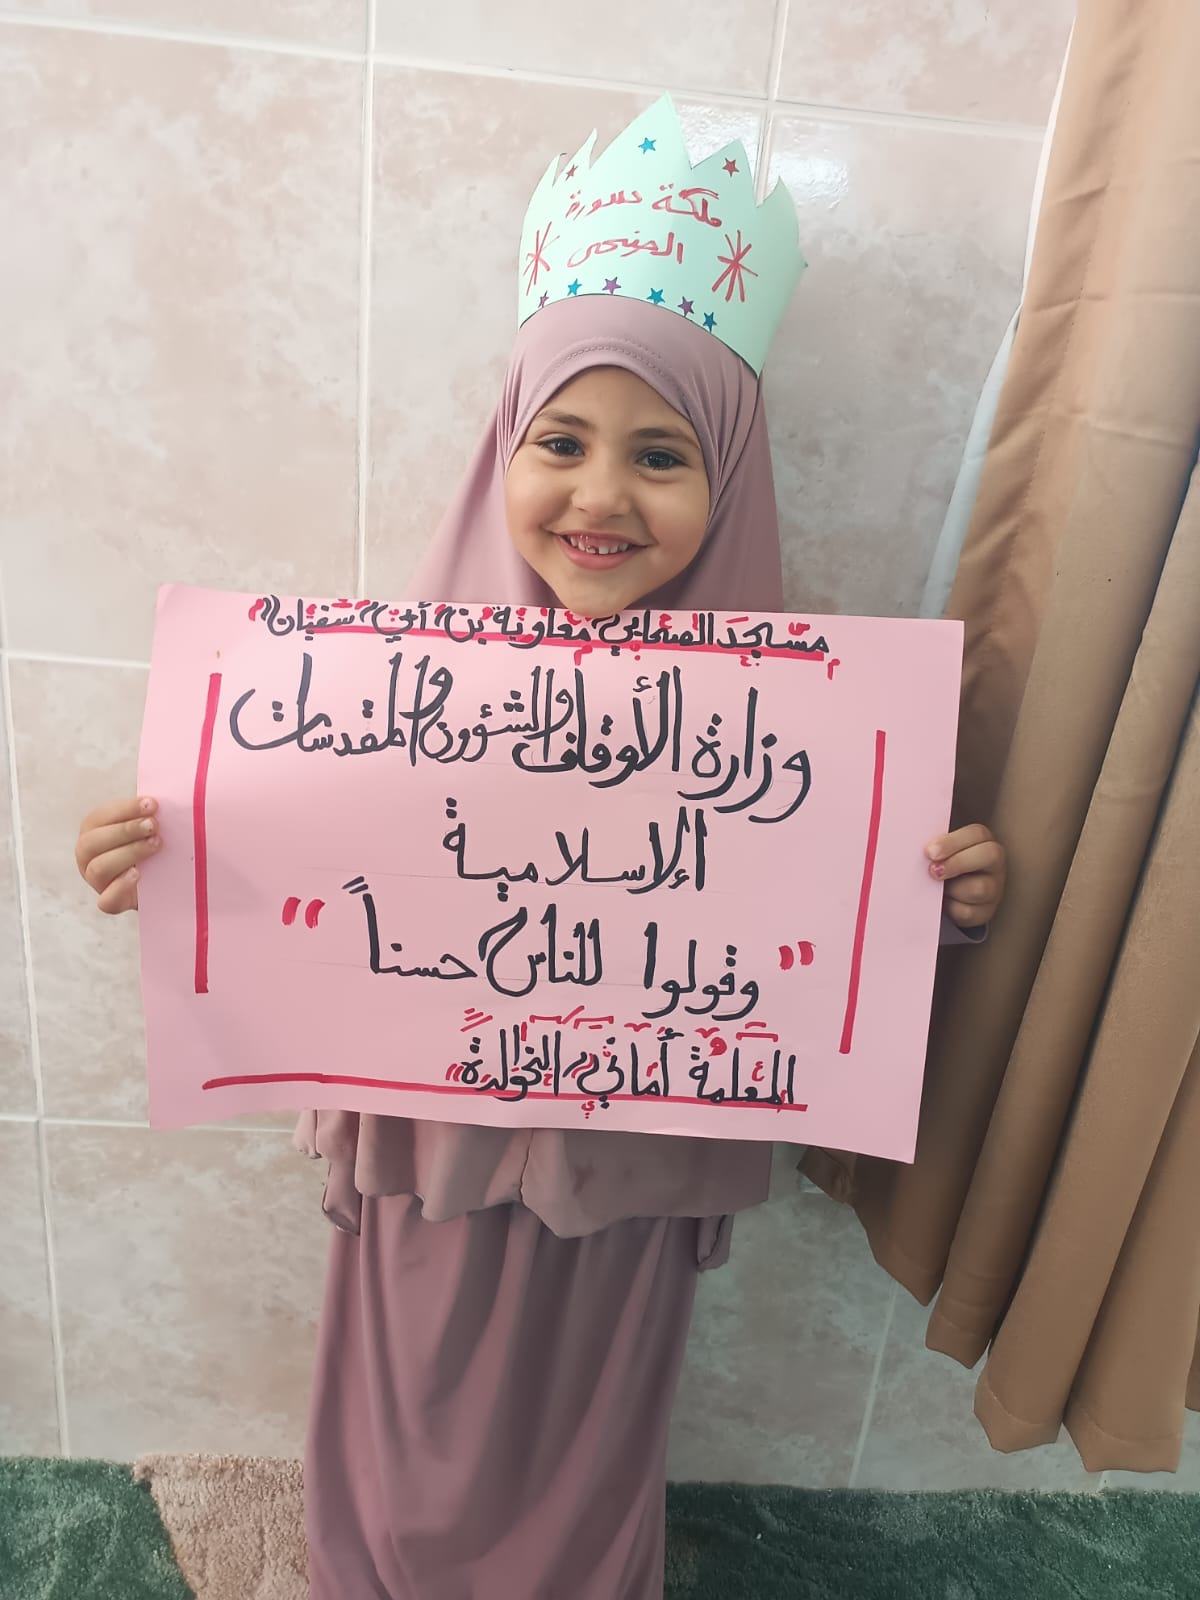 ملكة سورة
الضحى
مسجد الصحابي معاوية بن أبي سفيان
وزارة الأوقاف والشؤون والمقدسات
الإسلامية
" وقولوا للناس حسناً "
المعلمة أماني الخوالدة